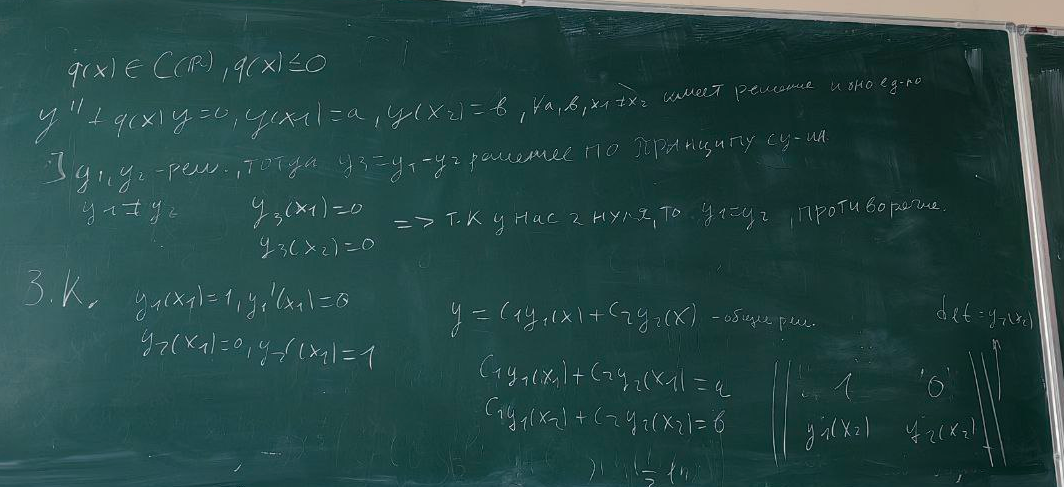 q(x) ∈ C(ℝ), q(x) ≤ 0
y'' + q(x)y = 0, y(x1) = a, y(x2) = b, ∀a, b, x1 ≠ x2 имеет решение и оно ед-но
] y1, y2 - реш., тогда y3 = y1 - y2 решение по принципу су-ии.
y1 ≠ y2 y3(x1) = 0 => т.к у нас 2 нуля, то y1 = y2, противоречие.
y3(x2) = 0
З.К. y1(x1) = 1, y1'(x1) = 0
y2(x1) = 0, y2'(x1) = 1
y = C1y1(x) + C2y2(x) - общее реш.
C1y1(x1) + C2y2(x1) = a
C1y1(x2) + C2y2(x2) = b
det = y2(x2)
1 0
y1(x2) y2(x2)